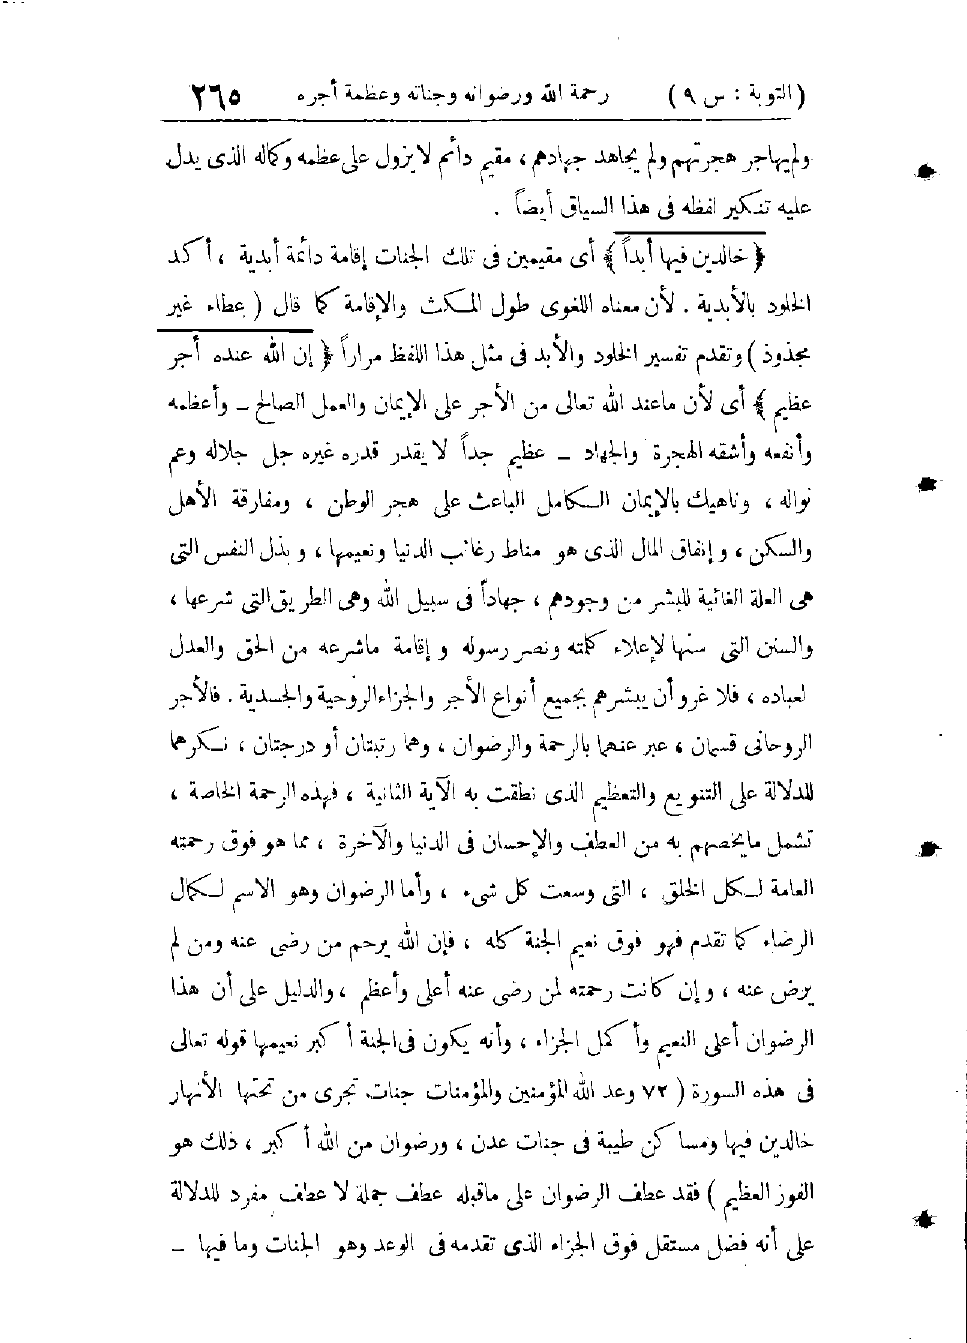 (التوبة : س ٩) رحمة الله ورضوانه وجناته وعظمة أجره ٢٦٥
ولم يهاجر هجرتهم ولم يجاهد جهادهم ، مقيم دائم لا يزول على عظمه وكماله الذى يدل
عليه تنكير لفظه فى هذا السياق أيضاً .
﴿ خالدين فيها أبداً ﴾ أى مقيمين فى تلك الجنات إقامة دائمة أبدية ، أكد
الخلود بالأبدية . لأن معناه اللغوى طول المكث والإقامة كما قال ( عطاء غير
مجذوذ ) وتقدم تفسير الخلود والأبد فى مثل هذا اللفظ مراراً ﴿ إن الله عنده أجر
عظيم ﴾ أى لأن ماعند الله تعالى من الأجر على الإيمان والعمل الصالح ــ وأعظمه
وأنفعه وأشقه الهجرة والجهاد ــ عظيم جداً لا يقدر قدره غيره جل جلاله وعم
نواله ، وناهيك بالإيمان الكامل الباعث على هجر الوطن ، ومفارقة الأهل
والسكن ، وإنفاق المال الذى هو مناط رغائب الدنيا ونعيمها ، وبذل النفس التى
هى العلة الغائية للبشر من وجودهم ، جهاداً فى سبيل الله وهى الطريق التى شرعها ،
والسنن التى سنها لإعلاء كلمته ونصر رسوله وإقامة ماشرعه من الحق والعدل
لعباده ، فلا غرو أن يبشرهم بجميع أنواع الأجر والجزاء الروحية والجسدية . فالأجر
الروحانى قسمان ، عبر عنهما بالرحمة والرضوان ، وهما رتبتان أو درجتان ، نكرهما
للدلالة على التنويع والتعظيم الذى نطقت به الآية الثانية ، فهذه الرحمة الخاصة ،
تشمل مايخصهم به من العطف والإحسان فى الدنيا والآخرة ، مما هو فوق رحمته
العامة لكل الخلق ، التى وسعت كل شىء ، وأما الرضوان وهو الاسم لكمال
الرضاء كما تقدم فهو فوق نعيم الجنة كله ، فإن الله يرحم من رضى عنه ومن لم
يرض عنه ، وإن كانت رحمته لمن رضى عنه أعلى وأعظم ، والدليل على أن هذا
الرضوان أعلى النعيم وأكمل الجزاء ، وأنه يكون فى الجنة أكبر نعيمها قوله تعالى
فى هذه السورة ( ٧٢ وعد الله المؤمنين والمؤمنات جنات تجرى من تحتها الأنهار
خالدين فيها ومساكن طيبة فى جنات عدن ، ورضوان من الله أكبر ، ذلك هو
الفوز العظيم ) فقد عطف الرضوان على ماقبله عطف جملة لا عطف مفرد للدلالة
على أنه فضل مستقل فوق الجزاء الذى تقدمه فى الوعد وهو الجنات وما فيها ــ